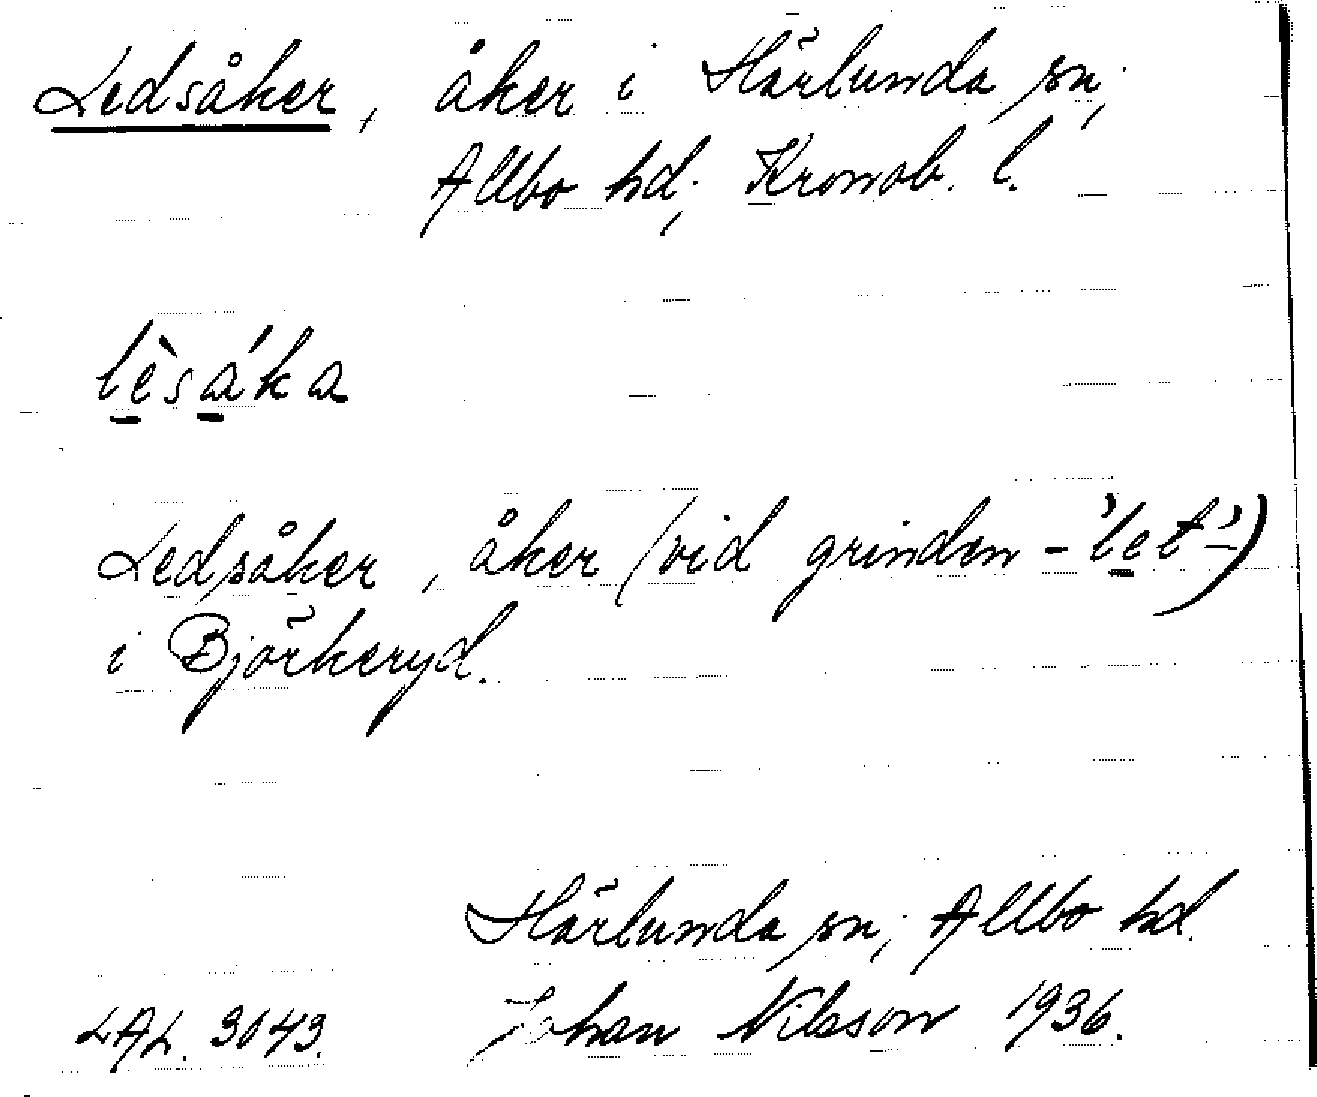 Ledsåker, åker i Härlunda sn,
Allbo hd, Kronob. l.
lèsáka
Ledsåker, åker (vid grinden - 'let'-)
i Björkeryd.
Härlunda sn, Allbo hd.
LAL. 3043. Johan Nilsson 1936.